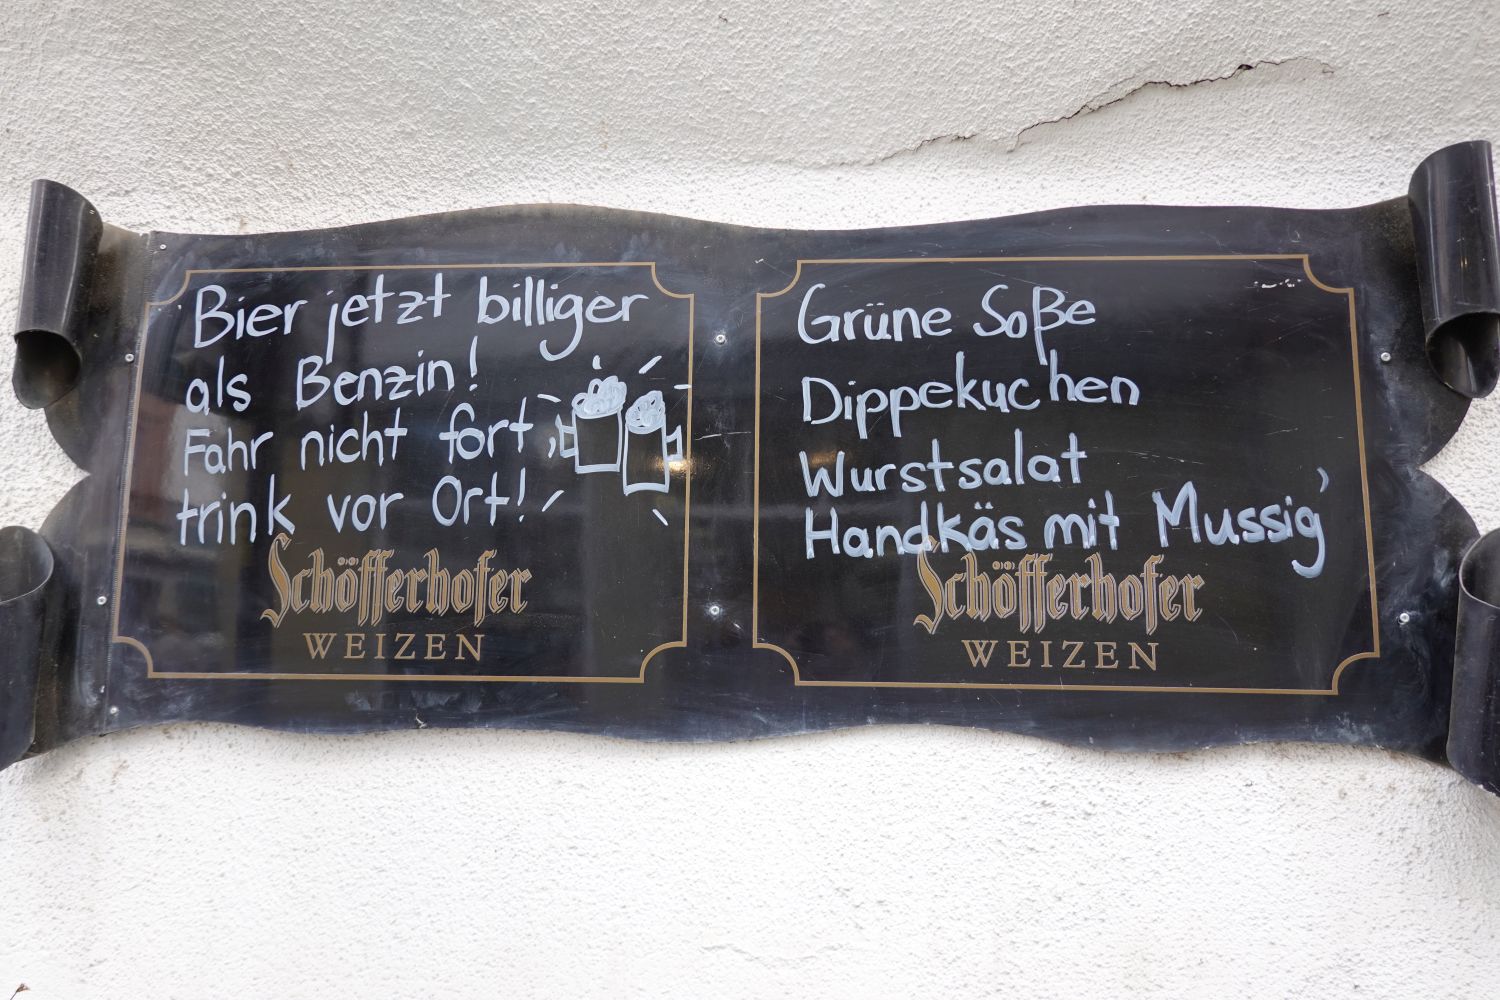 Bier jetzt billiger
als Benzin!
Fahr nicht fort,
trink vor Ort!
Schöfferhofer
WEIZEN
Grüne Soße
Dippekuchen
Wurstsalat
Handkäs mit Mussig'
Schöfferhofer
WEIZEN